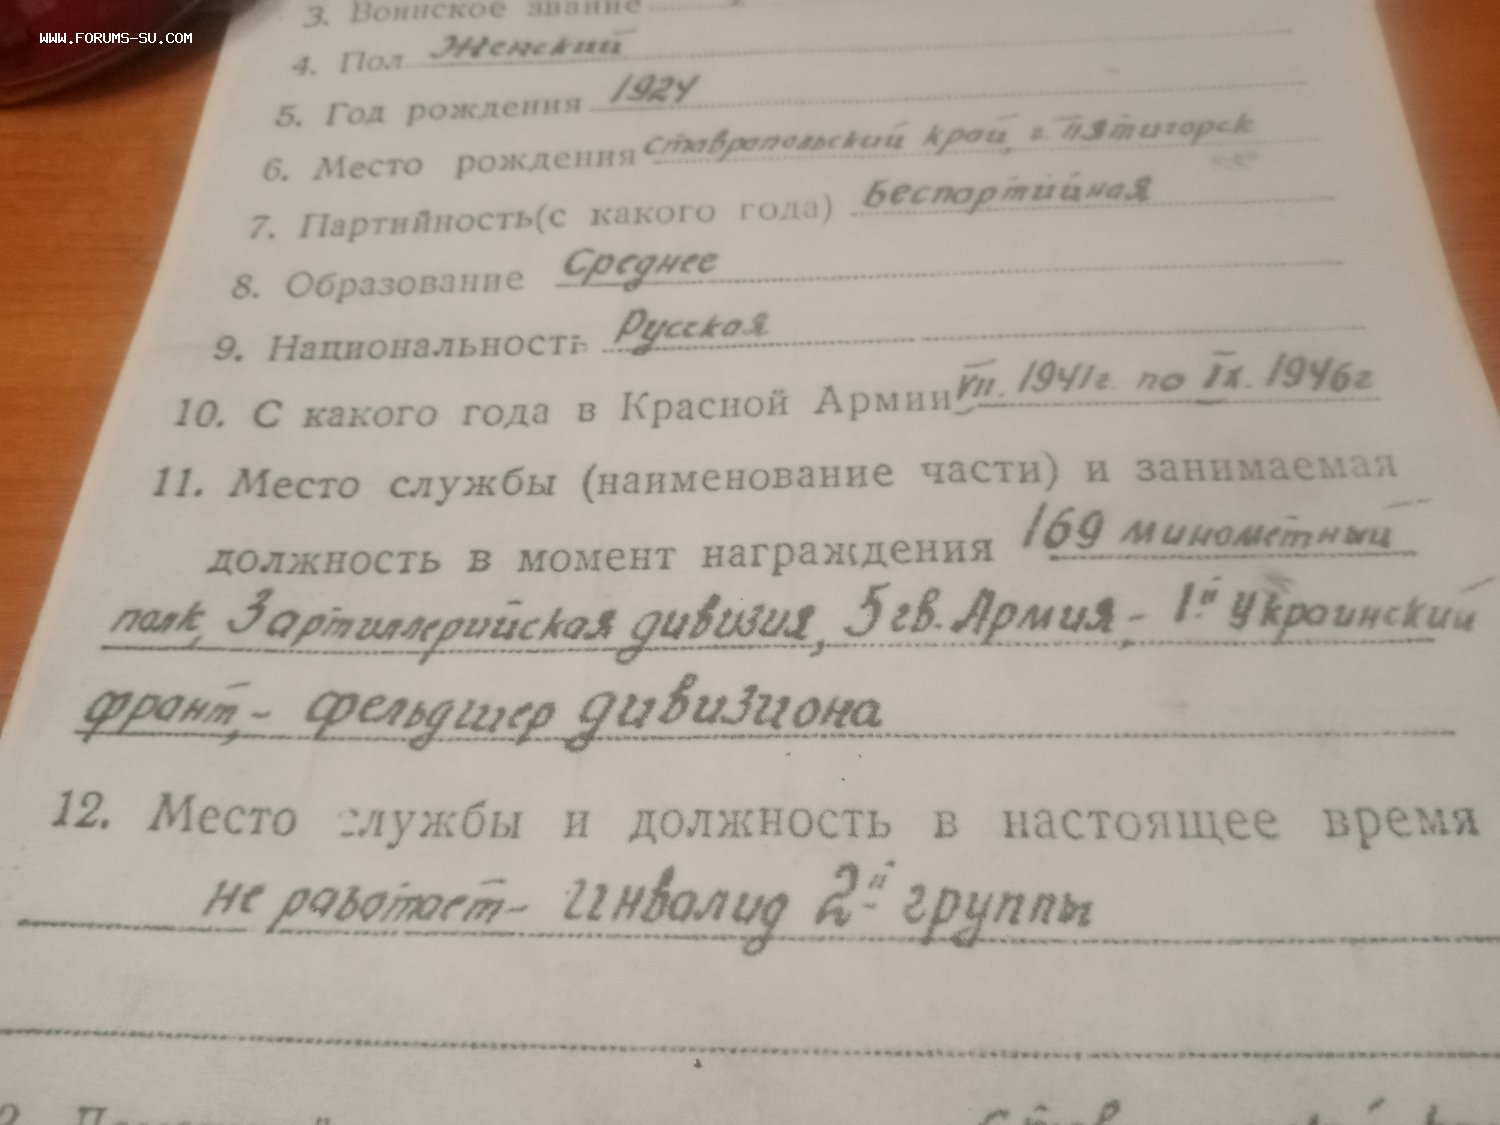 WWW.FORUMS-SU.COM
3. Воинское звание
4. Пол Женский
5. Год рождения 1924
6. Место рождения Ставропольский край, г. Пятигорск
7. Партийность(с какого года) Беспартийная
8. Образование Среднее
9. Национальность Русская
10. С какого года в Красной Армии VII. 1941г. по IX. 1946г
11. Место службы (наименование части) и занимаемая
должность в момент награждения 169 минометный
полк, 3 артиллерийская дивизия, 5 гв. Армия - 1й Украинский
фронт, - фельдшер дивизиона
12. Место службы и должность в настоящее время
не работает - Инвалид 2й группы